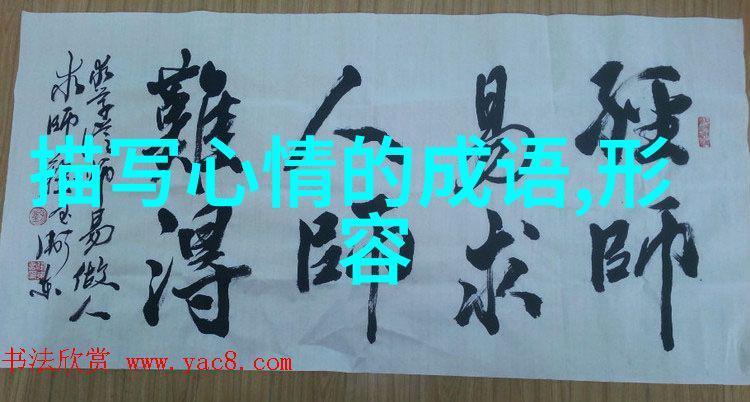 描写心情的成语,形
容
經師
易求
人師
難得
易做人
求師
书法欣赏 www.yac8.com